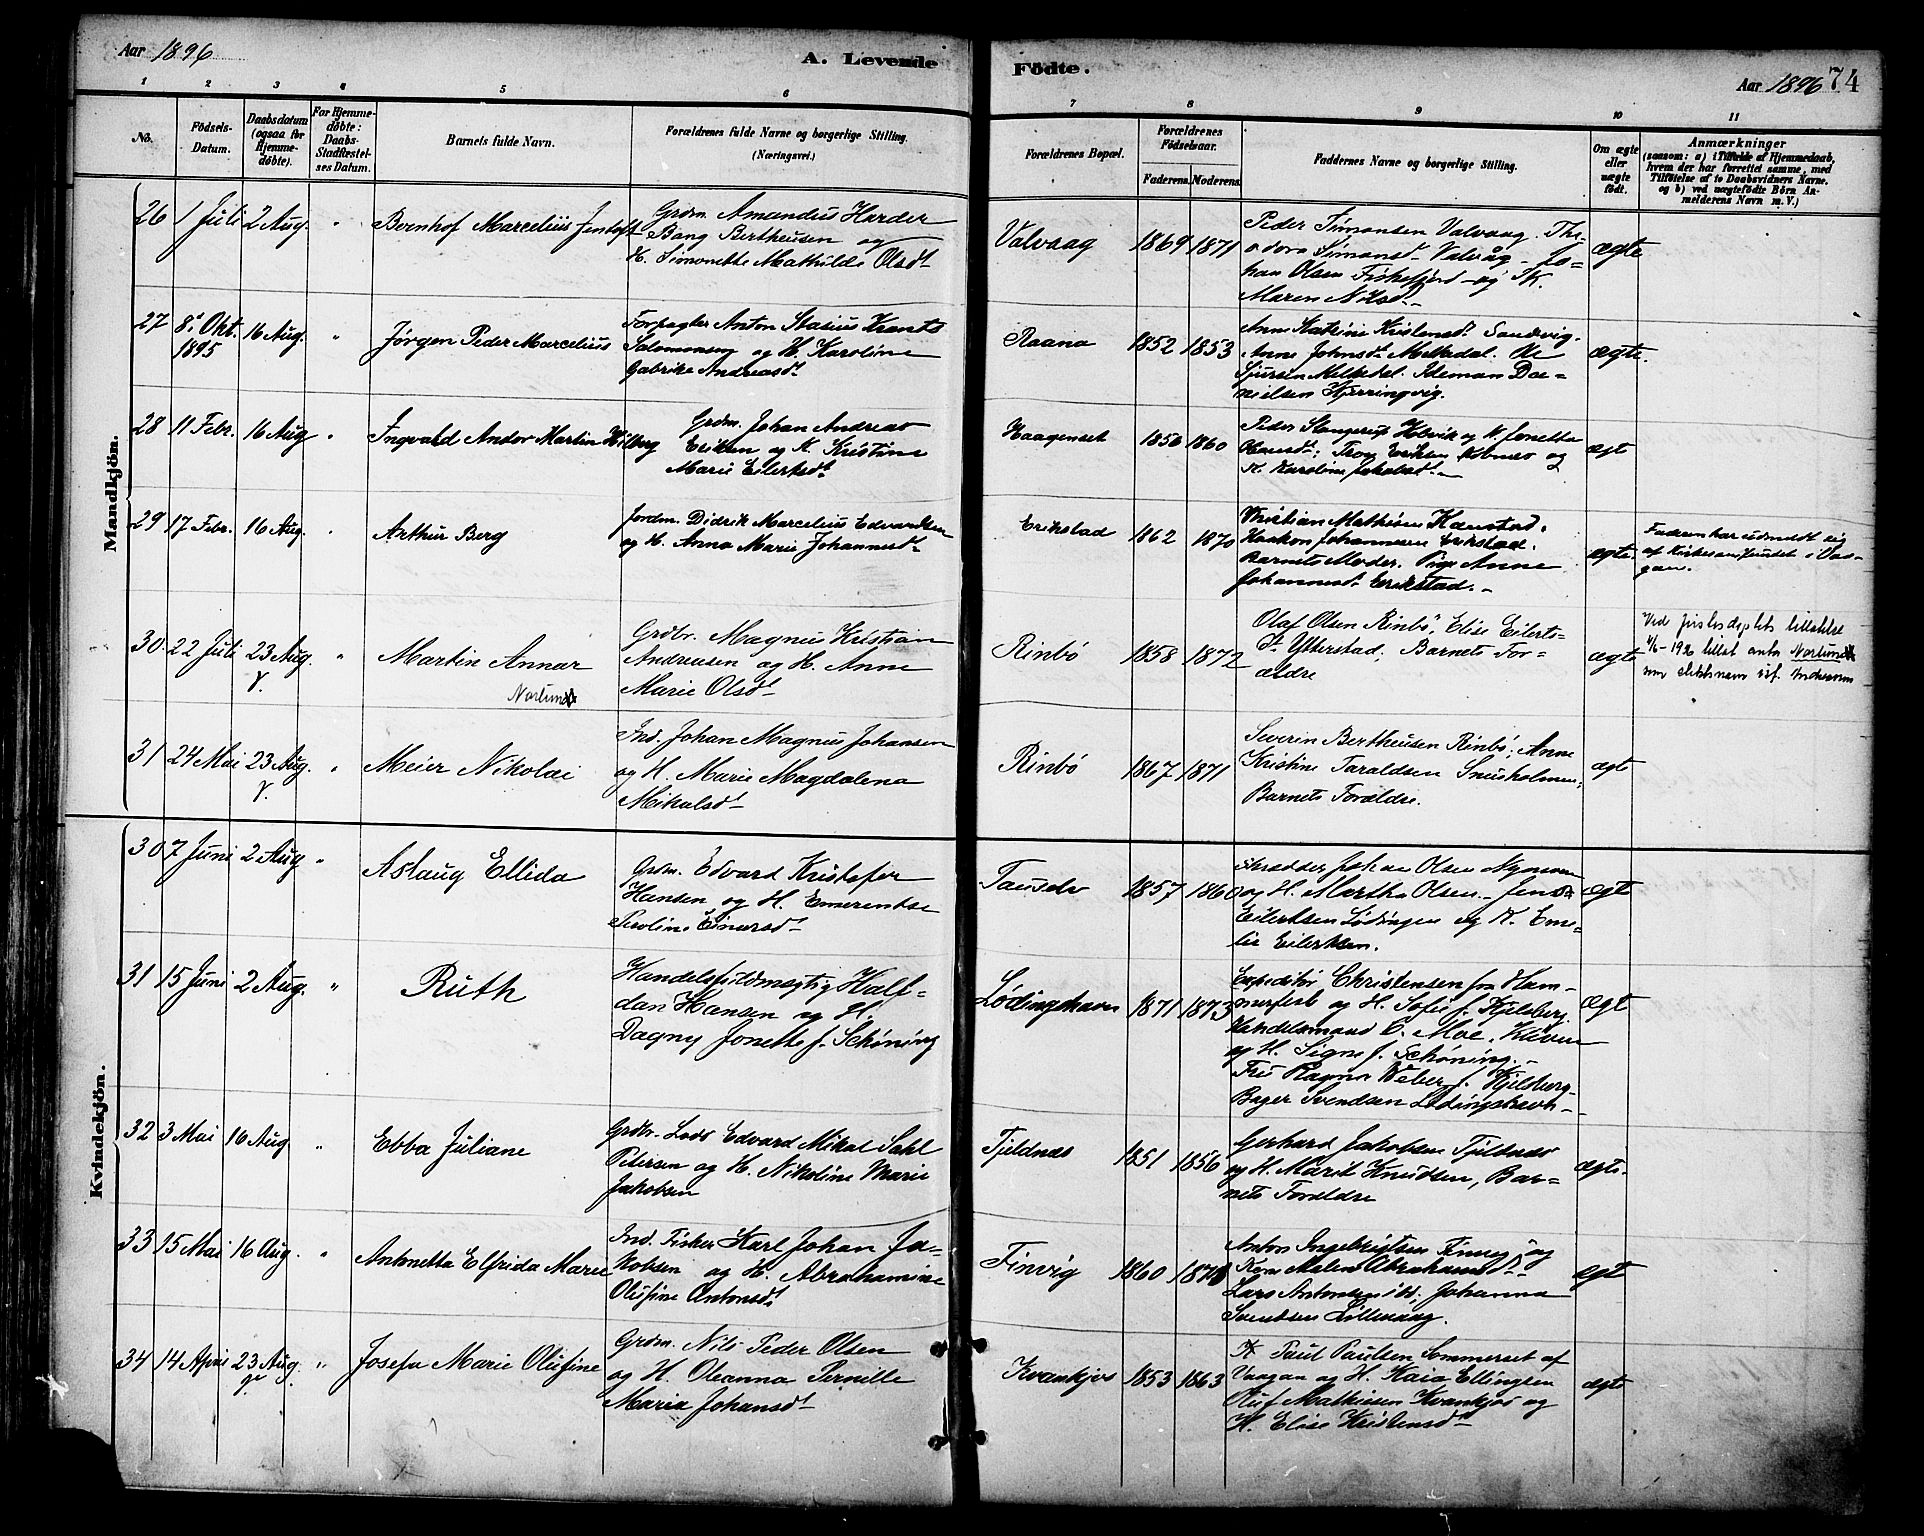 Aar 1896
A. Levende
Födte.
Aar 1896
74
1 2 3 4 5 6 7 8 9 10 11
No.
Födsels-
Datum.
Daabsdatum
(ogsaa for
Hjemme-
døbte).
For Hjemme-
døbte:
Daabs-
Stadfæstel-
ses Datum.
Barnets fulde Navn.
Forældrenes fulde Navne og borgerlige Stilling.
(Næringsvei.)
Forældrenes Bopæl.
Forældrenes
Födselsaar.
Faderens. Moderens.
Faddernes Navne og borgerlige Stilling.
Om ægte
eller
uægte
født.
Anmærkninger
(saasom: a) i Tilfælde af Hjemmedaab,
hvem der har forrettet samme, med
Tilföielse af to Daabsvidners Navne,
og b) ved uægtefödte Börn An-
melderens Navn m. V.)
Mandkjön.
26 1 Juli 2 Aug. " Bernhof Marcelius Jentoft
Grdm. Amandus Harder
Bang Bertheusen og
H. Simonette Mathilde Olsdt
Valvaag 1869 1871
Peder Simonsen Valvaag. The-
odora Simonsdt Valvåg - Jo-
han Olsen Fiskefjord og K.
Maren Nilsdt
ægte
27 8. Okt. 1895 16 Aug. " Jørgen Peder Marcelius
Forpagter Anton Stasius Krantz
Salomonsen og H. Karoline
Gabrike Andreasdt
Raana 1852 1853
Anne Katrine Kristensdt Sandvig.
Anne Johnsdt Melkedal. Ole
Sjursen Melkedal. Ideman Da-
nielsen Kjerringvig.
ægte.
28 11 Febr. 16 Aug " Ingvald Andor Martin Hilberg
Grdm. Johan Andreas
Eriksen og K. Kristine
Marie Eilertsdt
Haagenset 1856 1860
Peder Slangerup Holvik og K. Jonetta
Hansdt; Tron Eriksen og
K. Karoline Jakobsdt
ægt
29 17 Febr. 16 Aug. " Arthur Berg
Jordm. Didrik Marcelius Edvardsen
og H. Anna Marie Johannesdt
Erikstad 1862 1870
Kristian Mathisen Kanstad.
Haakon Johannesen Erikstad.
Barnets Moder. Pige Anne
Johannesdt Erikstad.
ægte.
Faderen har udmeldt sig
af Kirkesamfundet i Vaa-
gan.
30. 22 Juli 23 Aug. v. " Martin Annar
Nortun
Grdbr. Magnus Kristian
Andreasen og H. Anne
Marie Olsdt
Rinbö 1858 1872
Olaf Olsen Rinbö, Elise Eilerts-
dt Ytterstad, Barnets For-
ældre
ægte
Ved tillatelse
1926 tillat anta Nortun
som slektsnavn isf. Andreassen
31 24 Mai 23 Aug. v. " Meier Nikolai
Ind. Johan Magnus Johansen
og H. Marie Magdalena
Mikalsdt
Rinbö 1867 1871
Severin Bertheusen Rinbö; Anne
Kristine Taraldsen Snusholmen;
Barnets Forældre.
ægt
Kvindekjön.
30 7 Juni 2 Aug " Aslaug Ellida
Grdm. Edvard Kristofer
Hansen og H. Emerentse
Paoline Einarsdt
1857 1860
Skradder Johan Olsen Nymoen
og H. Martha Olsen. Jens
Eilertsen Lödingen og K. Eme-
lie Eilertsen.
ægt
31 15 Juni 2 Aug. " Ruth
Handelsfuldmægtig Half-
dan Hansen og H.
Dagny Jonette f. Schöning
Lödingshavn 1871 1873
Expeditör Christensen fra Ham-
merfest og H. Sofie f. Kjelsberg.
Handelsmand C. Moe, Kilven
og H. Signe f. Schöning.
Fru Ragna Weber f. Kjelsberg
Bager Svendsen Lödingshavn
Ægt
32 3 Mai 16 Aug " Ebba Juliane
Grdbr. Lods Edvard Mikal Dahl
Petersen og H. Nikoline Marie
Jakobsen
Tjeldnæs 1851 1856
Gerhard Jakobsen Tjeldnæs
og H. Marit Knudsen, Bar-
nets Forældre
ægte.
33 15 Mai 16 Aug. " Antonetta Elfrida Marie
Ind. Fisker Karl Johan Ja-
kobsen og H. Abrahamine
Olufine Antonsdt
Finvig 1860 1870
Anton Ingebrigtsen Finvig og
Kone Malene Abrahamsdt
Lars Antonsen ibd. Johanna
Svendsen Lillevaag.
ægt
34 14 April 23 Aug. v. " Josefa Marie Olufine
Grdm. Nils Peder Olsen
og H. Oleanna Pernille
Maria Johansdt
Kvankjos 1853 1863
Paul Paulsen Sommerset af
Vaagan og H. Kaia Ellingsen
Oluf Mathisen Kvankjos og
H. Elise Kristensdt
ægte